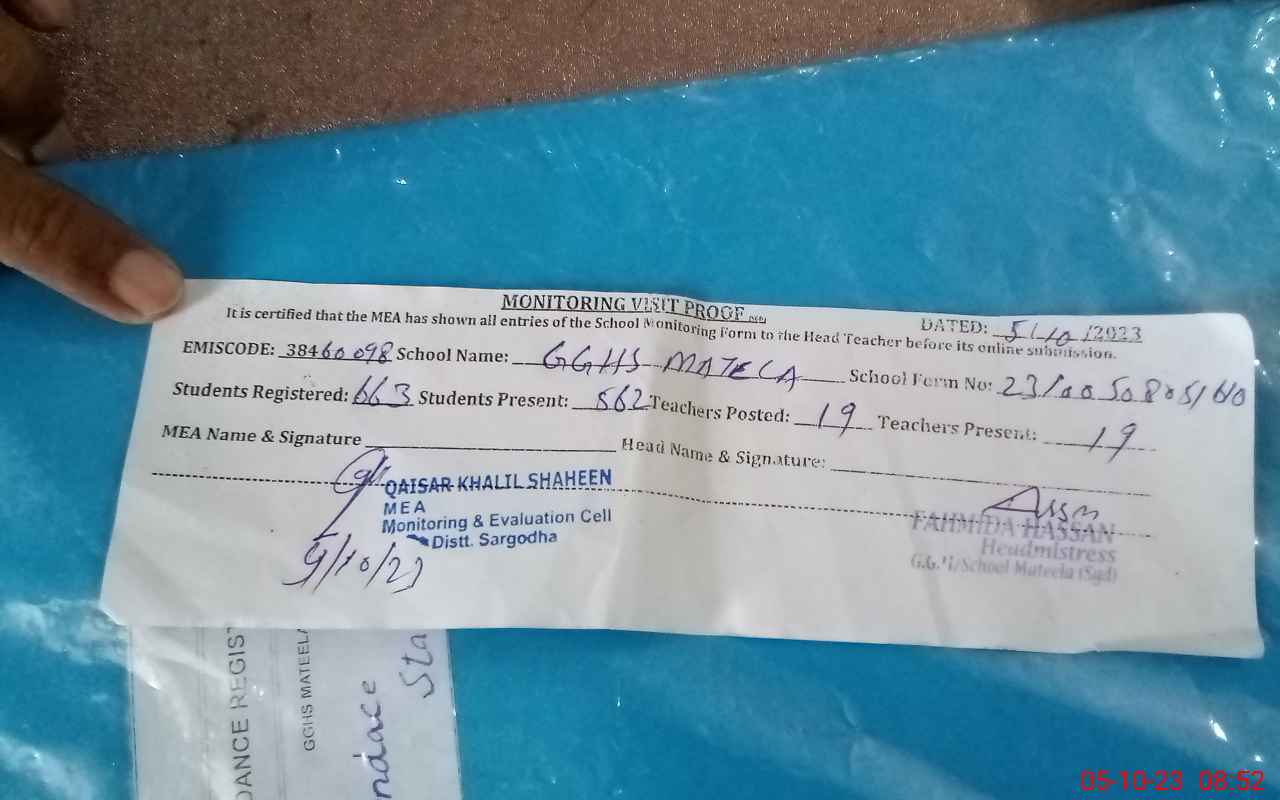 MONITORING VISIT PROOF
DATED: 5/10/2023
It is certified that the MEA has shown all entries of the School Monitoring Form to the Head Teacher before its online submission.
EMISCODE: 38460098 School Name: GGHS MATELA School Form No:
Students Registered: 663 Students Present: 562 Teachers Posted: 19 Teachers Present: 19
MEA Name & Signature Head Name & Signature:
QAISAR KHALIL SHAHEEN
MEA
Monitoring & Evaluation Cell
Distt. Sargodha
5/10/23
FAHMIDA HASSAN
Headmistress
G.G.H/School Mateela (Sgd)
DANCE REGIST
GGHS MATEELA
ndace
Sta
05-10-23 08:52